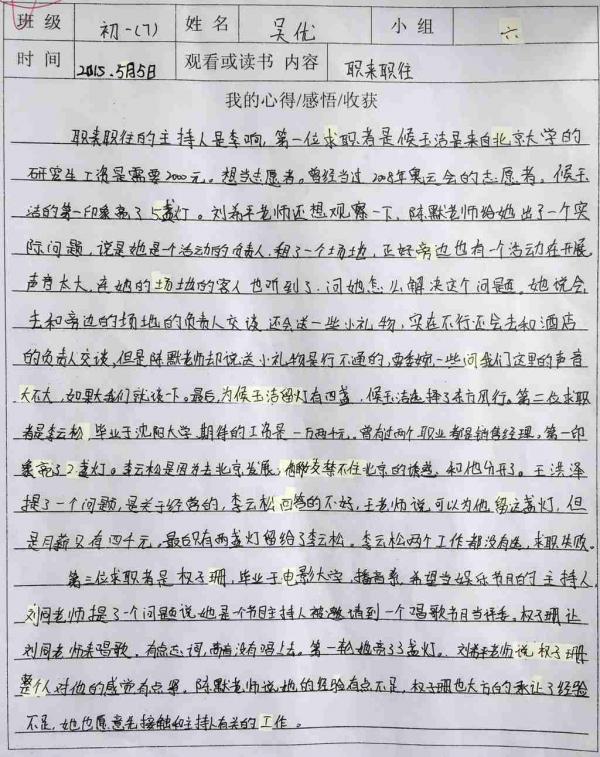 班级 初一(7) 姓名 吴优 小组 六
时间 2015.5月5日 观看或读书内容 职来职住
我的心得/感悟/收获
职来职住的主持人是李响,第一位求职者是候玉洁是来自北京大学的
研究生工资是需要2000元。想当志愿者。曾经当过2008年奥运会的志愿者。候玉
洁的第一印象亮了5盏灯。刘希平老师还想观察一下,陈默老师给她出了一个实
际问题,说是她是个活动的负责人,租了一个场地,正好旁边也有一个活动在开展
声音太大,在她的场地的客人也听到了.问她怎么解决这个问题。她说会
去和旁边的场地的负责人交谈还会送一些小礼物,实在不行还会去和酒店
的负责人交谈,但是陈默老师却说送小礼物是行不通的,要委婉一些问我们这里的声音
大不大,如果大我们就谈一下。最后,为候玉洁留灯有四盏,候玉洁选择了东方风行。第二位求职
者是李云松,毕业于沈阳大学,期待的工资是一万两千元。曾有过两个职业都是销售经理。第一印
象亮了2盏灯。李云松是因为去北京发展,禁不住北京的诱惑,和他分开了。王洪泽
提了一个问题,是关于经营的,李云松回答的不好,王老师说可以为他留这盏灯,但
是月薪只有四千元。最后只有两盏灯留给了李云松。李云松两个工作都没有选,求职失败。
第三位求职者是权子珊,毕业于电影大学,播音系,希望当娱乐节目的主持人
刘同老师提了一个问题说她是个节目主持人被邀请到一个唱歌节目当评委。权子珊让
刘同老师来唱歌,有点忘词,没有唱上去。第一轮她亮了3盏灯。刘希平老师说,权子珊
整个人对他的感觉有点累。陈默老师说她的经验有点不足,权子珊也大方的承认了经验
不足,她也愿意先接触和主持人有关的工作。